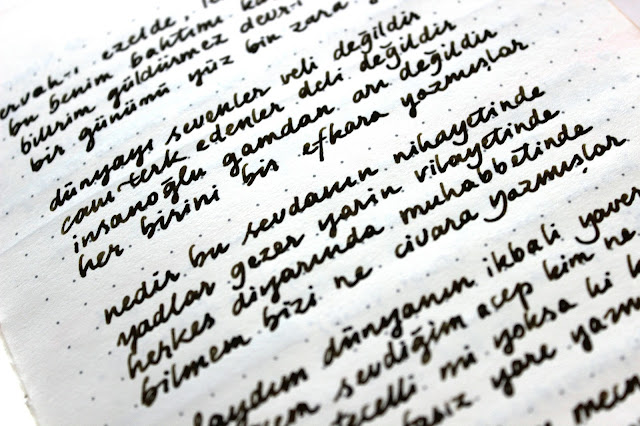 ervah-ı ezelde, le
bu benim bahtımı ka
bilirim güldürmez devr-i
bir günümü yüz bin zara
dünyayı sevenler veli değildir
canı terk edenler deli değildir
insanoğlu gamdan arı değildir
her birini bir efkara yazmışlar
nedir bu sevdanın nihayetinde
yadlar gezer yarin vilayetinde
herkes diyarında muhabbetinde
bilmem bizi ne civara yazmışlar
laydım dünyanın ikbali yaver
em sevdiğim acep kim ne
tecelli mi yoksa hi k
yare yazm
mecn